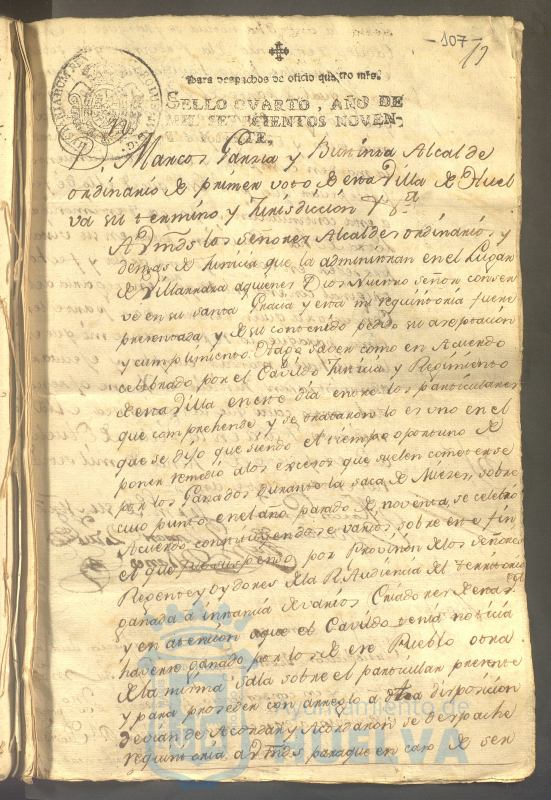 -107-
Para despachos de oficio quatro mrs.
SELLO QVARTO, AÑO DE
MIL SETECIENTOS NOVEN-
TE.
D. Marcos Garzia y Bunta Alcalde
ordinario de primer voto de esta Villa de Huel
va su termino y Jurisdiccion &
A Vmds los Señores Alcaldes ordinarios y
demas de Justicia que la administran en el Lugar
de Villarrasa aquienes Dios Nuestro Señor conser
ve en su santa Gracia y esta mi requisitoria fuere
presentada y de su contenido pedido su aceptacion
y cumplimiento. Hago saver como en Acuerdo
celebrado por el Cavildo Justicia y Regimiento
de esta Villa en este dia entre los particulares
que comprehende y se trataron lo es uno en el
que se dijo que siendo el tiempo oportuno de
poner remedio alos excesos que suelen cometerse
por los Ganados durante la saca de Mieses, sobre
cuio punto en el año pasado de noventa se celebró
Acuerdo constituyendose varios sobre este fin
el que suspendió por Provision de los señores
Regente y Oydores de la R. Audiencia del territorio
ganada á instancia de varios Criadores de esta
y en atencion aque el Cavildo tenia noticia
haverse ganado por los de ese Pueblo otra
de la misma Sala sobre el particular presente
y para proceder con arreglo a otra disposicion
devian de Acordar y Acordaron se despache
requisitoria a Vmds para que en caso de ser
Ayuntamiento de
HUELVA